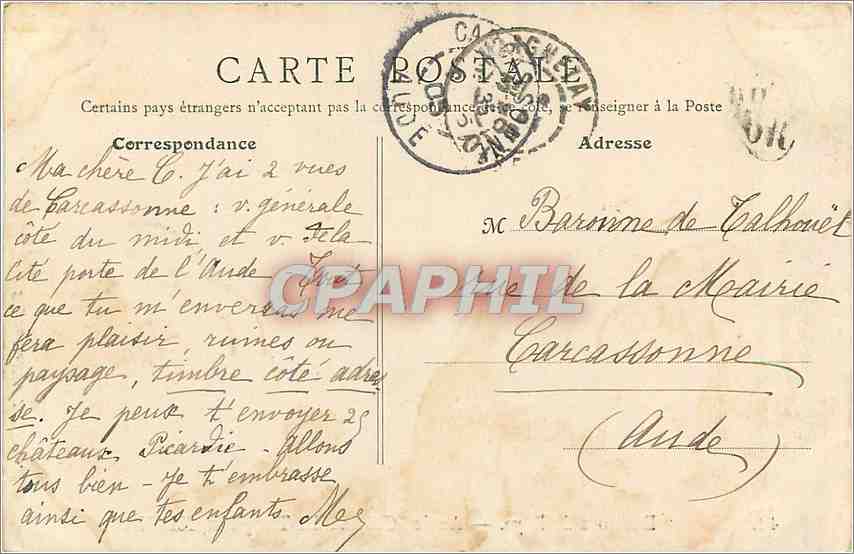 CARTE POSTALE
Certains pays étrangers n'acceptant pas la correspondance de ce côté, se renseigner à la Poste
Correspondance
Ma chère C. J'ai 2 vues
de Carcassonne : v. générale
côté du midi, et v. de la
Cité porte de l'Aude. Tout
ce que tu m'enverras me
fera plaisir, ruines ou
paysage, timbre côté adres
se. Je peux t'envoyer 25
châteaux Picardie - Allons
tous bien - Je t'embrasse
ainsi que tes enfants.
Adresse
M Baronne de Talhouët
rue de la Mairie
Carcassonne
(Aude)
CARCASSONNE
AUDE
CPAPHIL